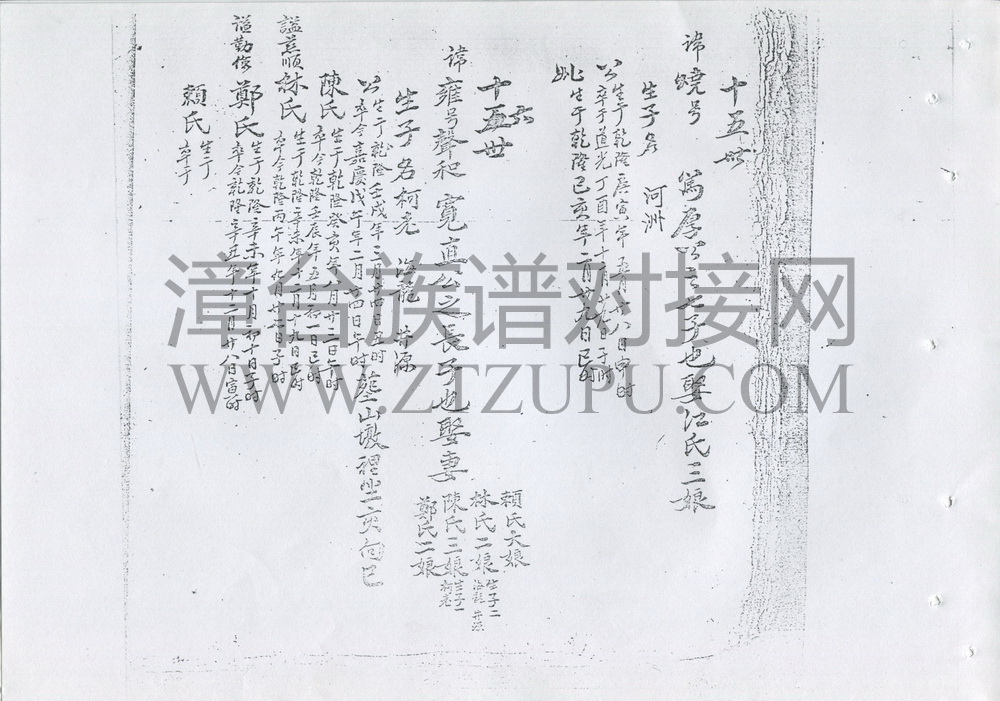 十五世
諱燒号 篤厚公之七子也娶江氏三娘
生子名 河洲
公生于乾隆庚寅年五月十八日申时
卒于道光丁酉年十月日子时
妣生于乾隆己亥年二月廿九日巳时
十六世
諱雍号聲和 寬直公之長子也娶妻
賴氏大娘
林氏二娘生子二海龍 井源
陳氏三娘生子一柯老
鄭氏二娘
生子名柯老 海龍 井源
公生于乾隆壬戌年三月廿四日丑时
卒于嘉慶戊午年二月廿四日午时塟山墩裡坐亥向巳
陳氏生于乾隆癸亥年八月廿二日午时
卒于乾隆壬辰年五月初一日巳时
諡慈順林氏生于乾隆辛未年十一月十九日巳时
卒于乾隆丙午年九月廿二日子时
諡勤儉鄭氏生于乾隆辛未年十月初十日子时
卒于乾隆辛丑年十二月廿八日寅时
賴氏生于
卒于
漳台族谱对接网
WWW.ZTZUPU.COM